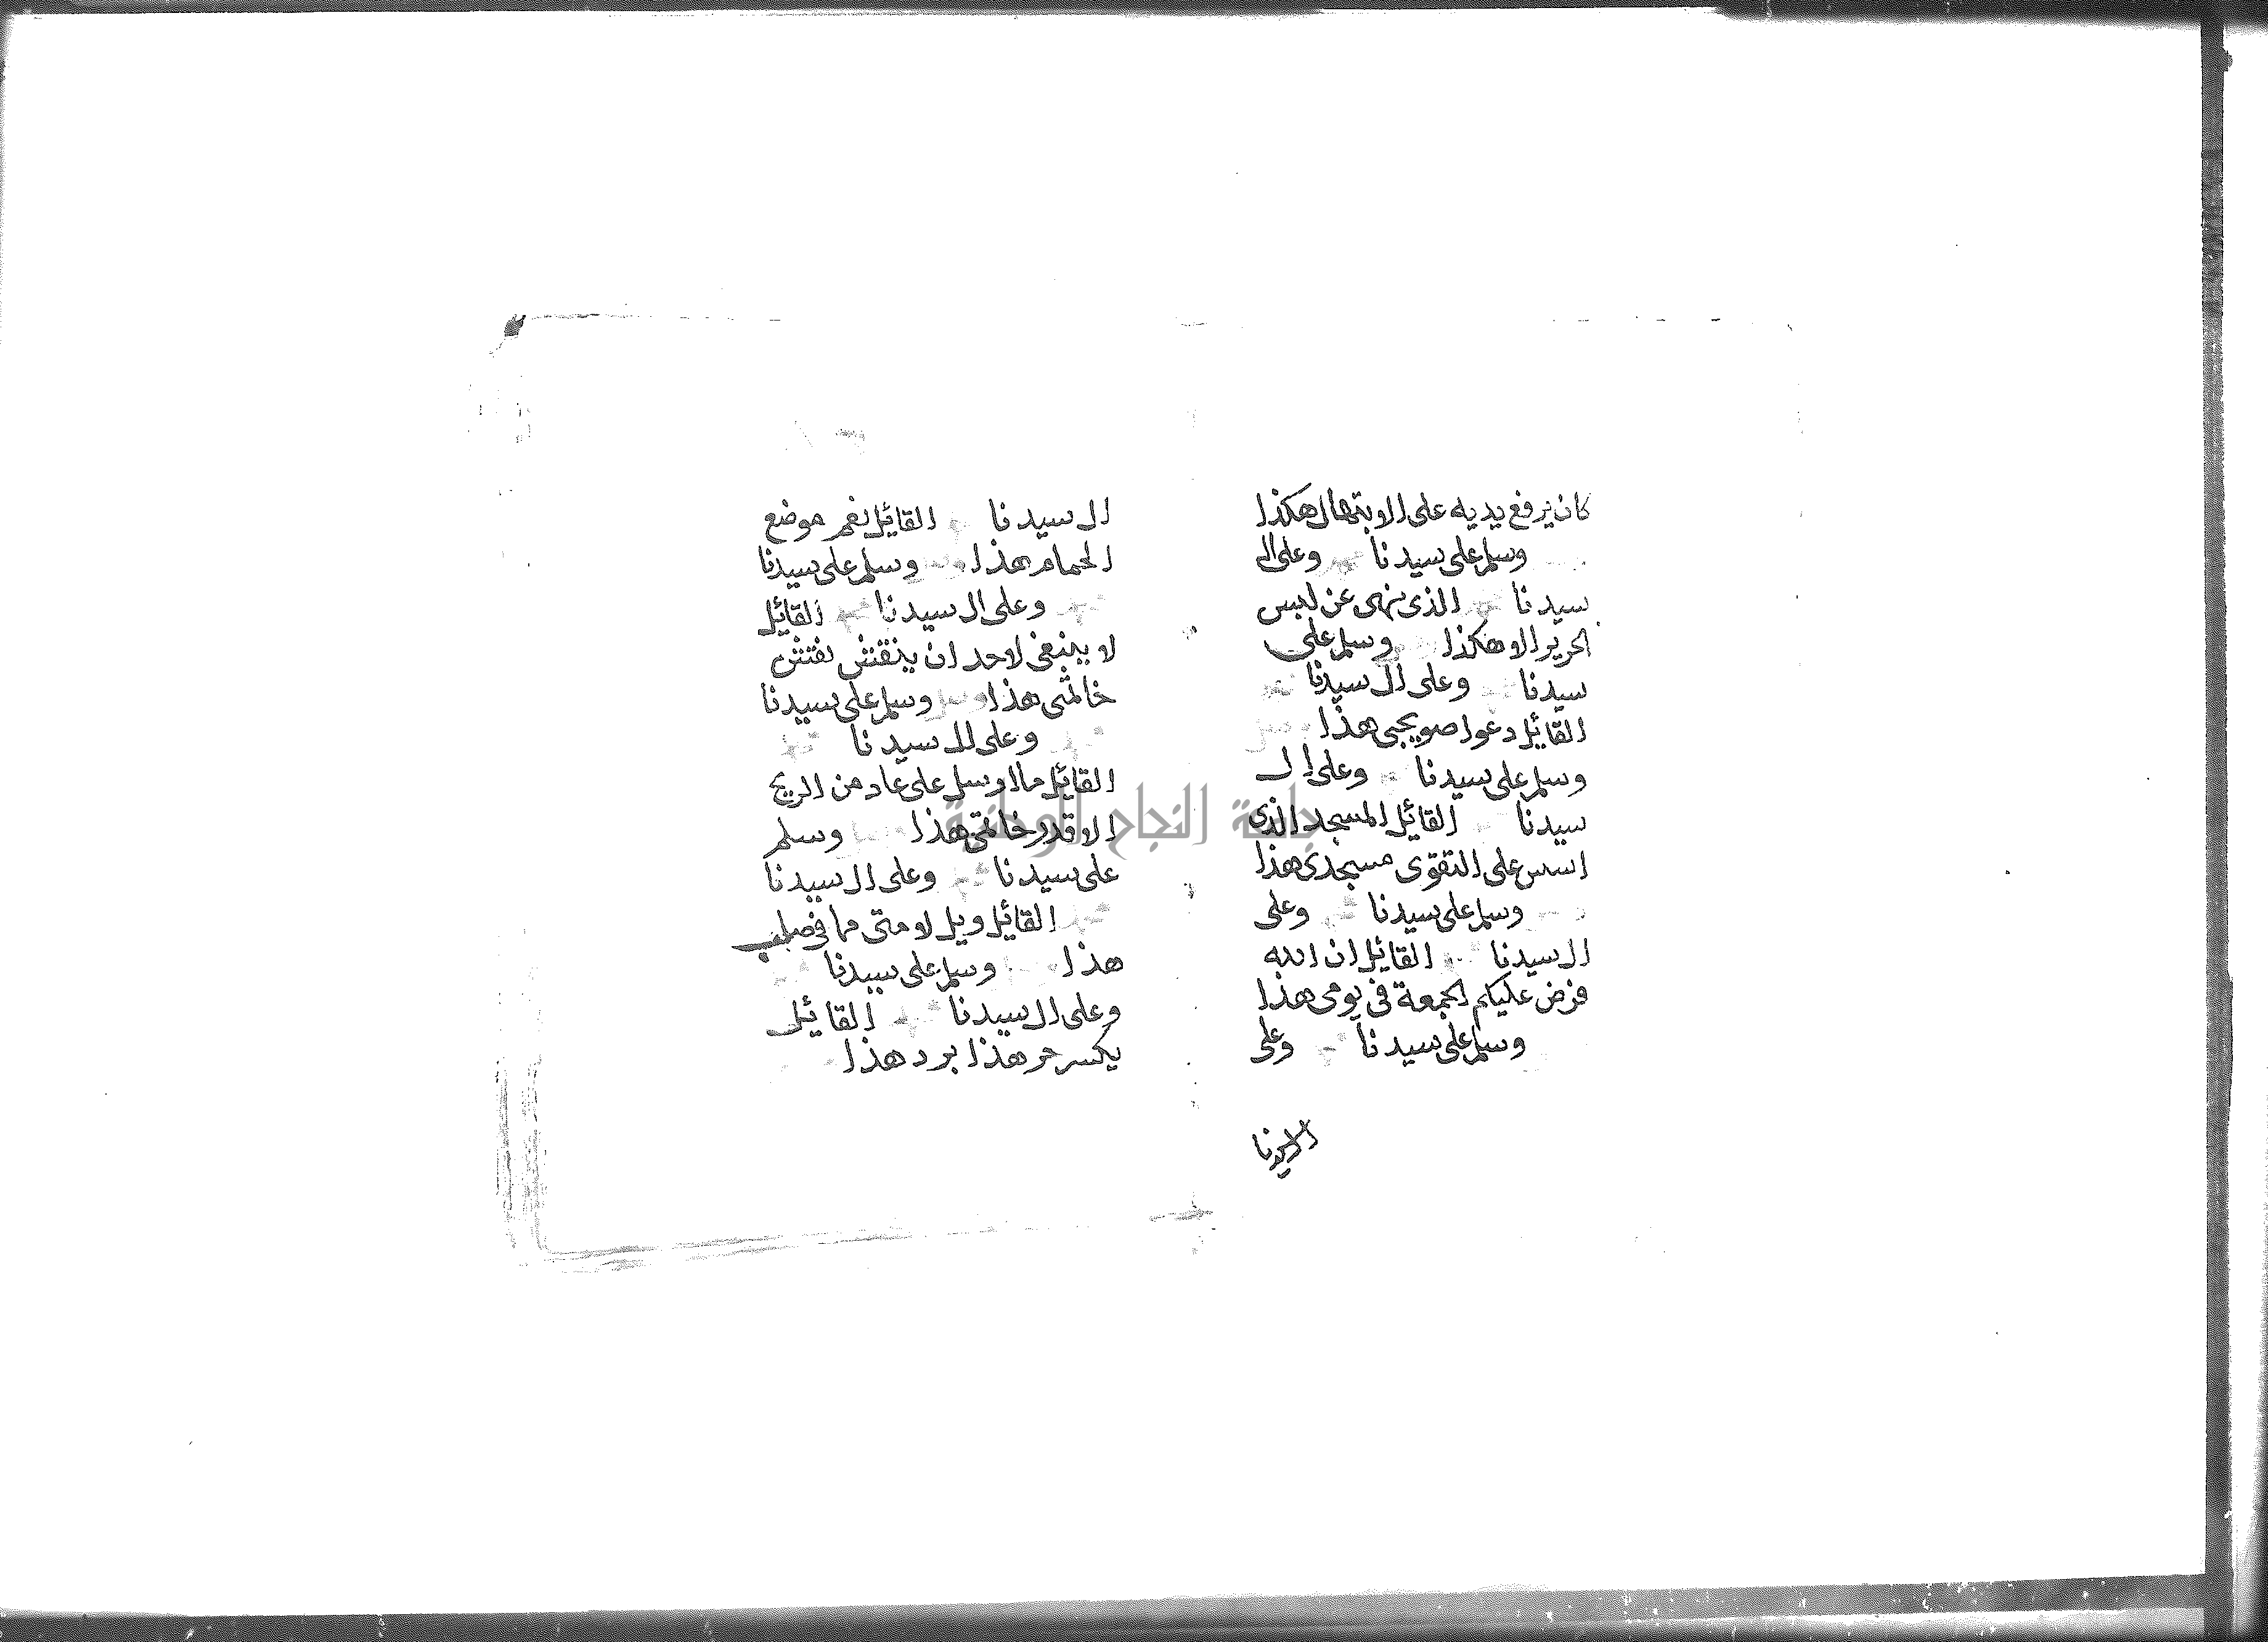 كان يرفع يديه على الابتهال هكذا
وسلم على سيدنا وعلى ال
سيدنا الذى نهى عن لبس
الحرير الا هكذا وسلم على
سيدنا وعلى ال سيدنا
القائل دعوا صويحبى هذا
وسلم على سيدنا وعلى ال
سيدنا القائل المسجد الذى
اسس على التقوى مسجدى هذا
وسلم على سيدنا وعلى
ال سيدنا القائل ان الله
فرض عليكم الجمعة فى يومى هذا
وسلم على سيدنا وعلى
ال سيدنا
ال سيدنا القائل نعم موضع
الحمام هذا وسلم على سيدنا
وعلى ال سيدنا القائل
لا ينبغى لاحد ان ينقش نقش
خاتمى هذا وسلم على سيدنا
وعلى ال سيدنا
القائل ما ارسل على عاد من الريح
الا قدر خاتمى هذا وسلم
على سيدنا وعلى ال سيدنا
القائل ويل لامتى مما فى صلب
هذا وسلم على سيدنا
وعلى ال سيدنا القائل
يكسر حر هذا برد هذا
جامعة النجاح الوطنية